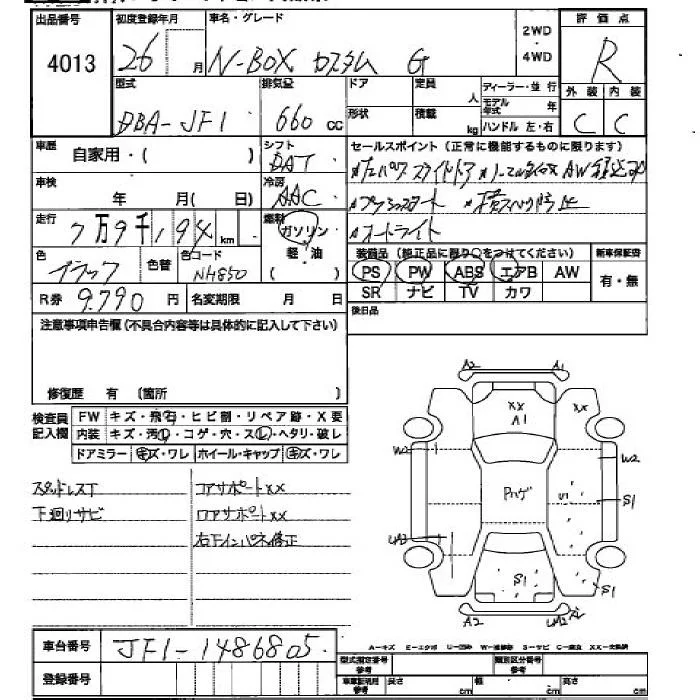 出品番号 初度登録年月 車名・グレード 2WD・4WD 評価点
4013 26 月 N-BOX カスタム G R
型式 排気量 ドア 定員 人 ディーラー・並行 外装 内装
DBA-JF1 660 cc 形状 積載 kg モデル年式 年 ハンドル 左・右 C C
車歴 自家用・( ) シフト DAT セールスポイント (正常に機能するものに限ります)
車検 年 月( ) 冷房 AAC
走行 7万9千194 km 燃料 ガソリン・軽・油 ( )
*プッシュスタート *横スベリ防止
*オートライト
色 ブラック 色替 色コード NH850
装備品 (純正品に限り○をつけてください) 新車保証書
PS PW ABS エアB AW 有・無
SR ナビ TV カワ
R券 9.790 円 名変期限 月 日 後日品
注意事項申告欄(不具合内容等は具体的に記入して下さい)
修復歴 有 〔箇所 〕
検査員記入欄 FW キズ・飛石・ヒビ割・リペア跡・X要
内装 キズ・汚れ・コゲ・穴・スレ・ヘタリ・破レ
ドアミラー キズ・ワレ ホイール・キャップ キズ・ワレ
スタッドレスT コアサポートXX
下廻りサビ ロアサポートXX
右下インパネ修正
A2 A1
XX A1 XX
W2 W2
Pハゲ U1 S1
UA3
S1 S1
A2 UA2
A-キズ E-エクボ U-凹み W-補修跡 S-サビ C-腐食 XX-交換済
車台番号 JF1-1486805
登録番号
型式指定番号 参考 類別区分番号 参考
車車証明用 参考 長さ cm 幅 cm 高さ cm